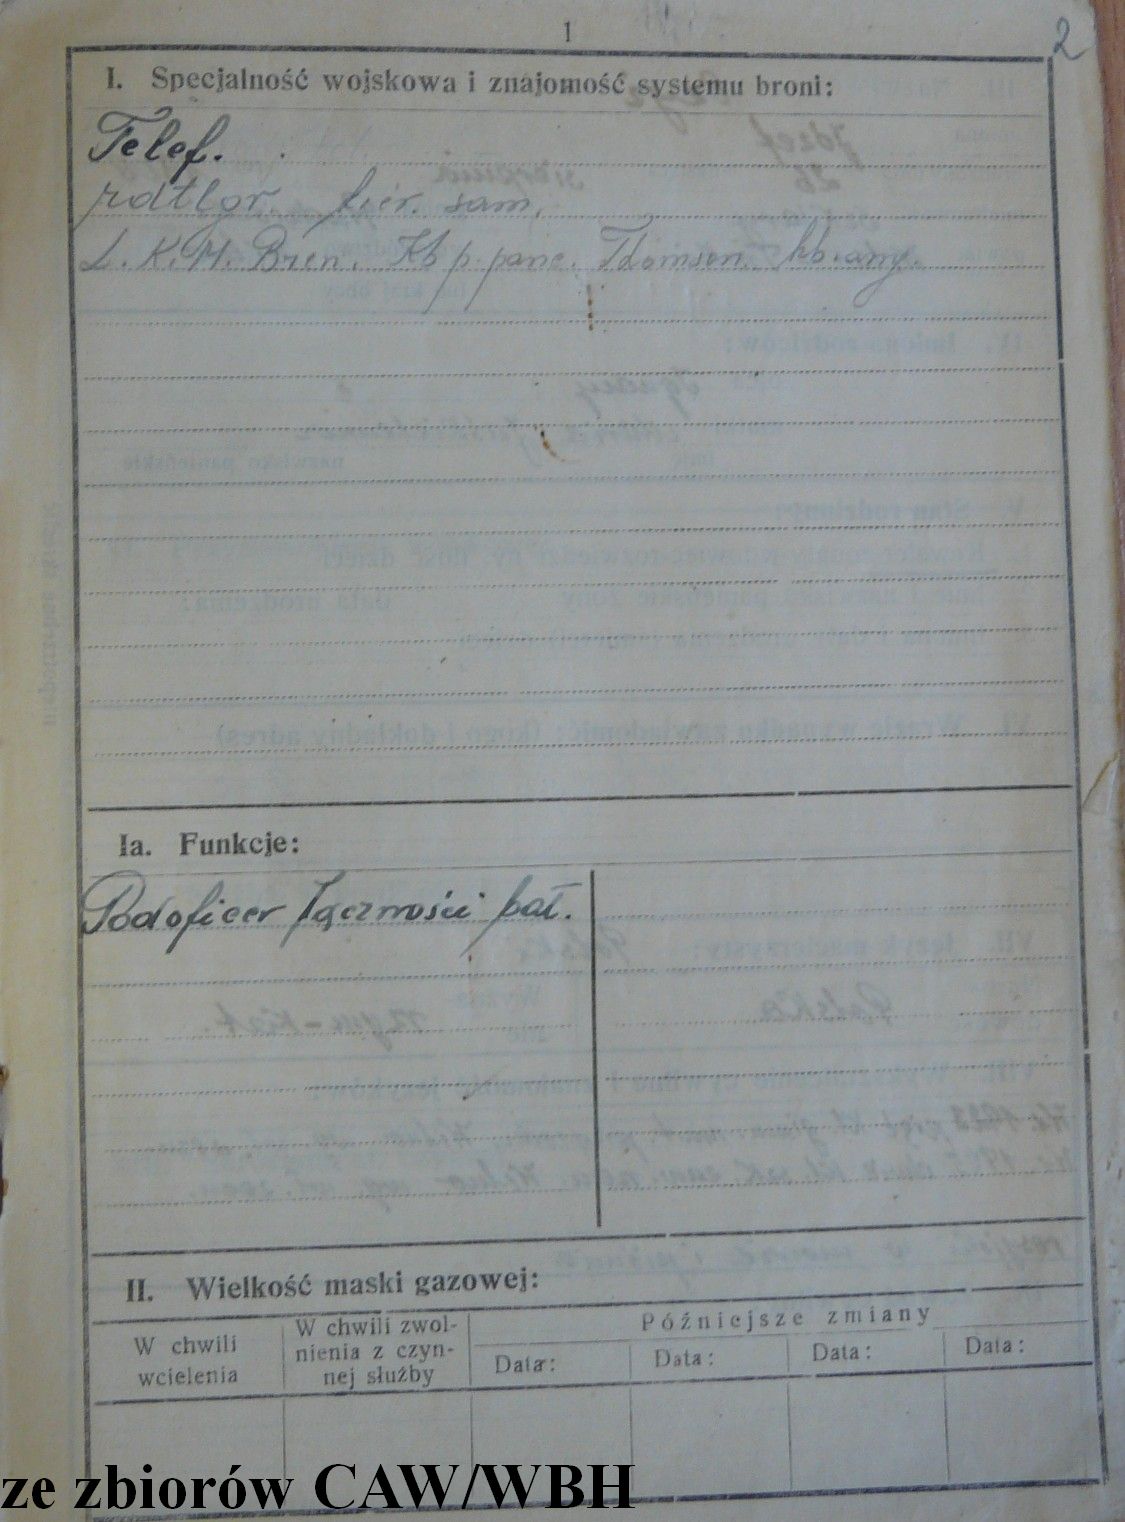 1
2
I. Specjalność wojskowa i znajomość systemu broni:
Telef.
rdtlgr. kier. sam.
L.K.M. Bren. Kb p.panc. Thomson. kb. amg.
Ia. Funkcje:
Podoficer łączności bat.
II. Wielkość maski gazowej:
W chwili wcielenia
W chwili zwol-
nienia z czyn-
nej służby
Późniejsze zmiany
Data:
Data:
Data:
Data:
ze zbiorów CAW/WBH